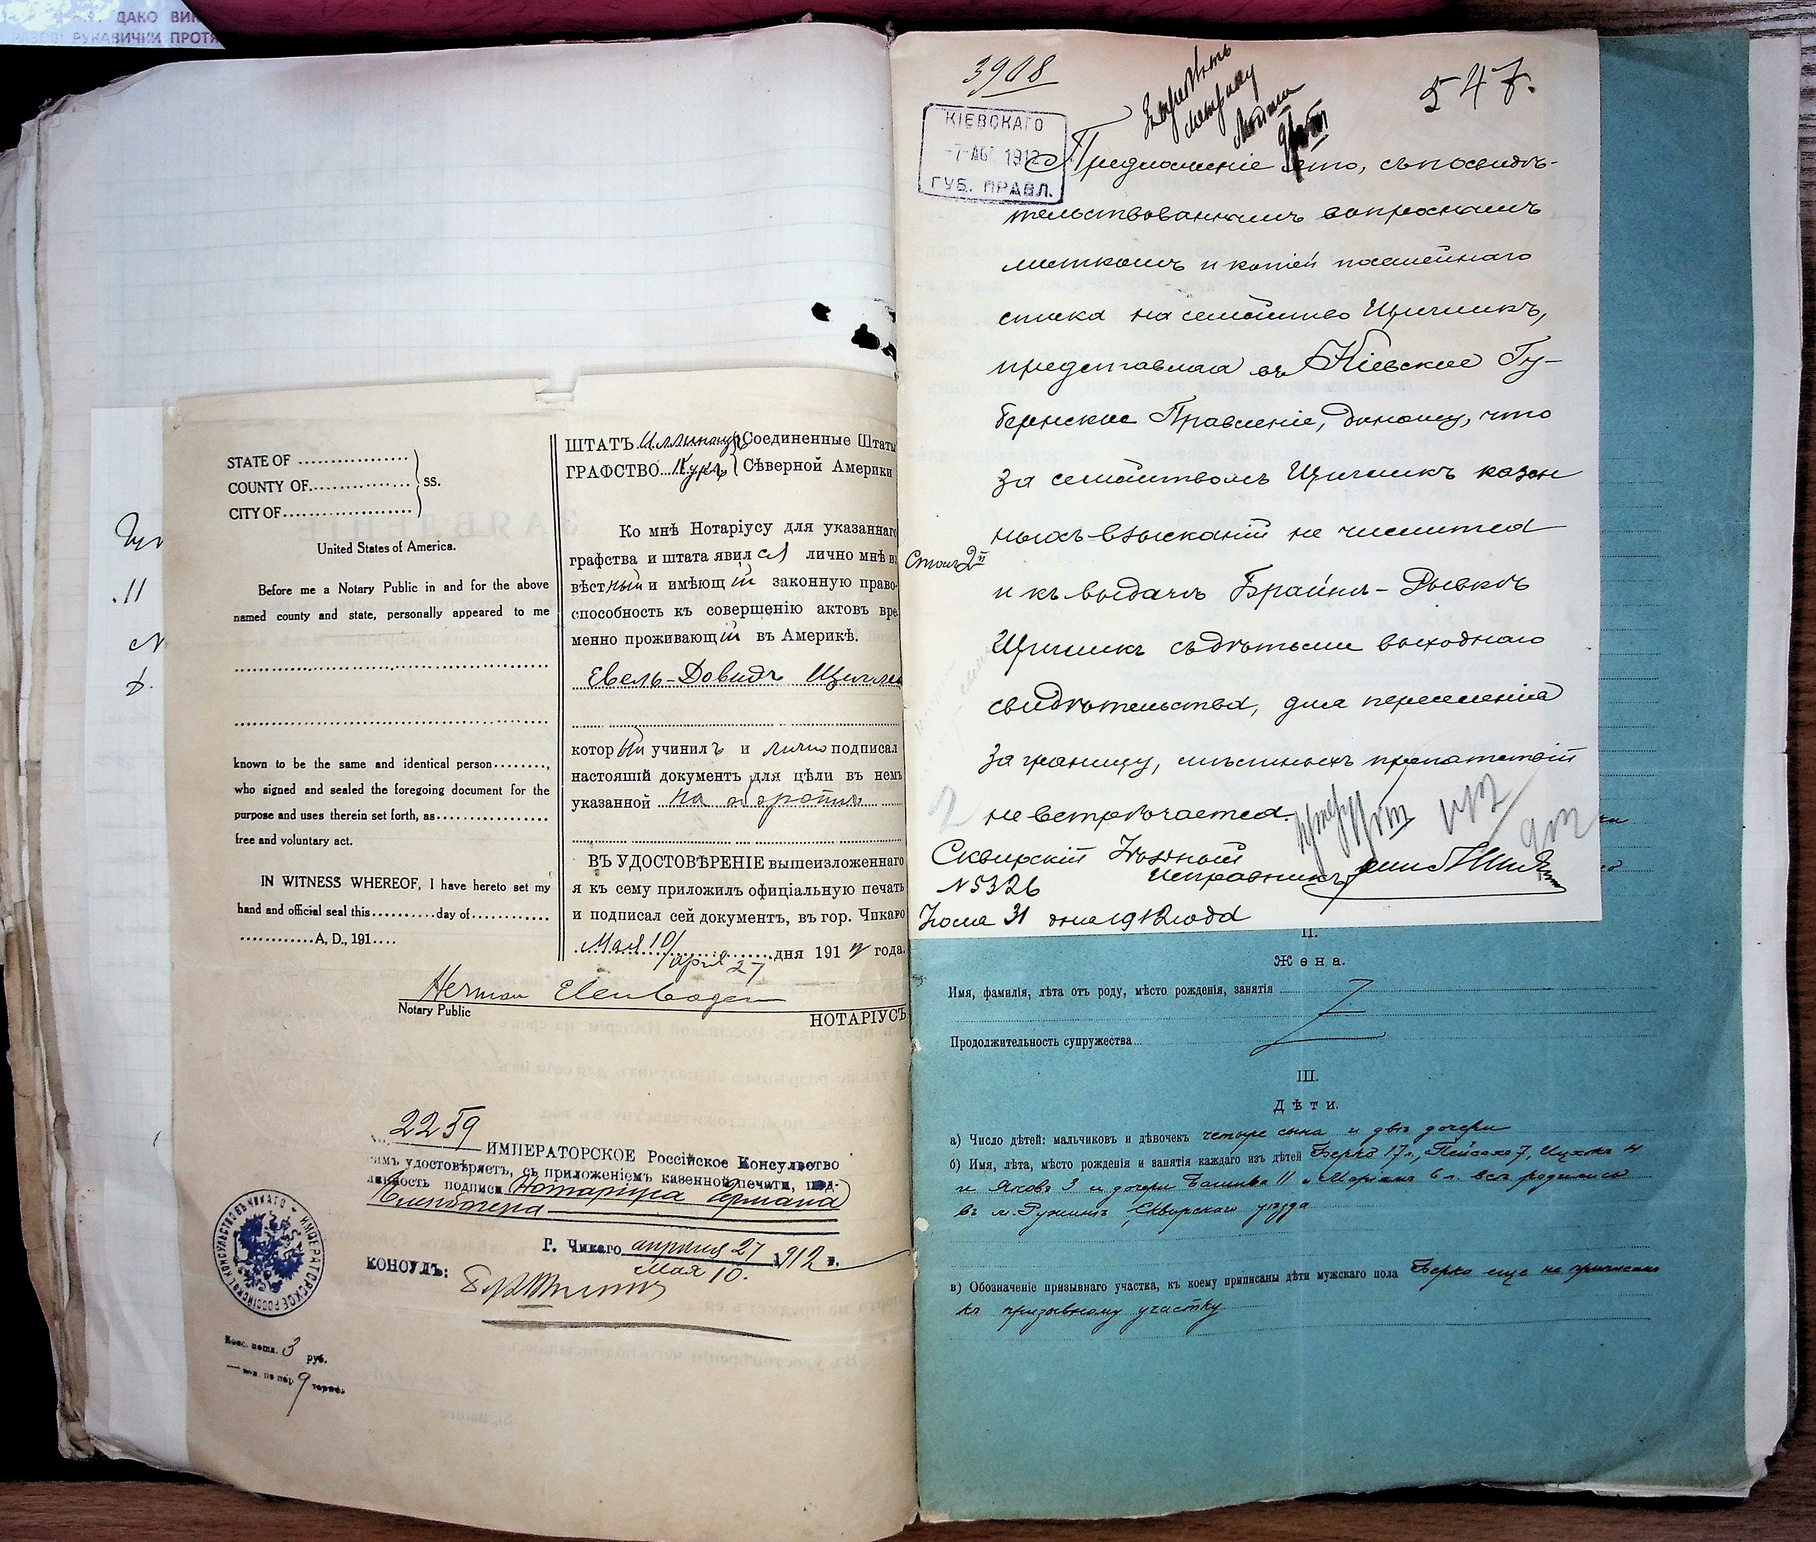 ДАКО ВИК
РУКАВИЧКИ ПРОТИ
STATE OF
COUNTY OF
CITY OF
ss.
United States of America.
Before me a Notary Public in and for the above
named county and state, personally appeared to me
known to be the same and identical person........,
who signed and sealed the foregoing document for the
purpose and uses therein set forth, as
free and voluntary act.
IN WITNESS WHEREOF, I have hereto set my
hand and official seal this..........day of
A, D., 191....
ШТАТЪ Иллинойс Соединенные Штаты
ГРАФСТВО Кукъ Сѣверной Америки
Ко мнѣ Нотаріусу для указаннаго
графства и штата явилсл лично мнѣ из
вѣстный и имѣющій законную право-
способность къ совершенію актовъ вре
менно проживающій въ Америкѣ.
Евель-Довидъ
который учинилъ и лично подписал
настоящій документъ для цѣли въ немъ
указанной на оборотѣ
ВЪ УДОСТОВѢРЕНІЕ вышеизложеннаго
я къ сему приложилъ официіальную печать
и подписал сей документъ, въ гор. Чикаго
Мая 10/април 27 дня 1912 года.
Herman Elenbogen
Notary Public
НОТАРІУСЪ
2259
ИМПЕРАТОРСКОЕ Россійское Консульство
симъ удостовѣряетъ, съ приложеніемъ казенной печати, под-
линность подписи Нотаріуса Германа
Еленбогена
Г. Чикаго апрѣля 27 1912 г.
Мая 10.
КОНСУЛЪ:
3 руб.
9
3908
547.
КІЕВСКАГО
7 АВГ 1912
ГУБ. ПРАВЛ.
Предложеніе это, съ посвидѣ-
тельствованнымъ вопроснымъ
листкомъ и копіей посемейнаго
списка на семейство Щигликъ,
представляя въ Кіевское Гу-
бернское Правленіе, доношу, что
за семействомъ Щигликъ казен
ныхъ взысканій не числится
Столъ 2й
и къ выдачѣ Брайнѣ-Рывкѣ
Щигликъ съ дѣтьми выходнаго
свидѣтельства, для переселенія
за границу, мѣстныхъ препятствій
не встрѣчается.
Сквирскій Уѣздный
Исправникъ
№ 5326
Іюля 31 дня 1912 года
II.
Жена.
Имя, фамилія, лѣта отъ роду, мѣсто рожденія, занятія
Продолжительность супружества
III.
Дѣти.
а) Число дѣтей: мальчиковъ и дѣвочекъ четыре сына и двѣ дочери
б) Имя, лѣта, мѣсто рожденія и занятія каждаго изъ дѣтей Берко 17 л., Пейсахъ 7, Ицхокъ 4
и Яковъ 3 и дочери 11 и Маріямъ 6 л. всѣ родились
въ м. Ружинѣ Сквирскаго уѣзда
в) Обозначеніе призывнаго участка, къ коему приписаны дѣти мужскаго пола Берко еще не приписанъ
къ призывному участку